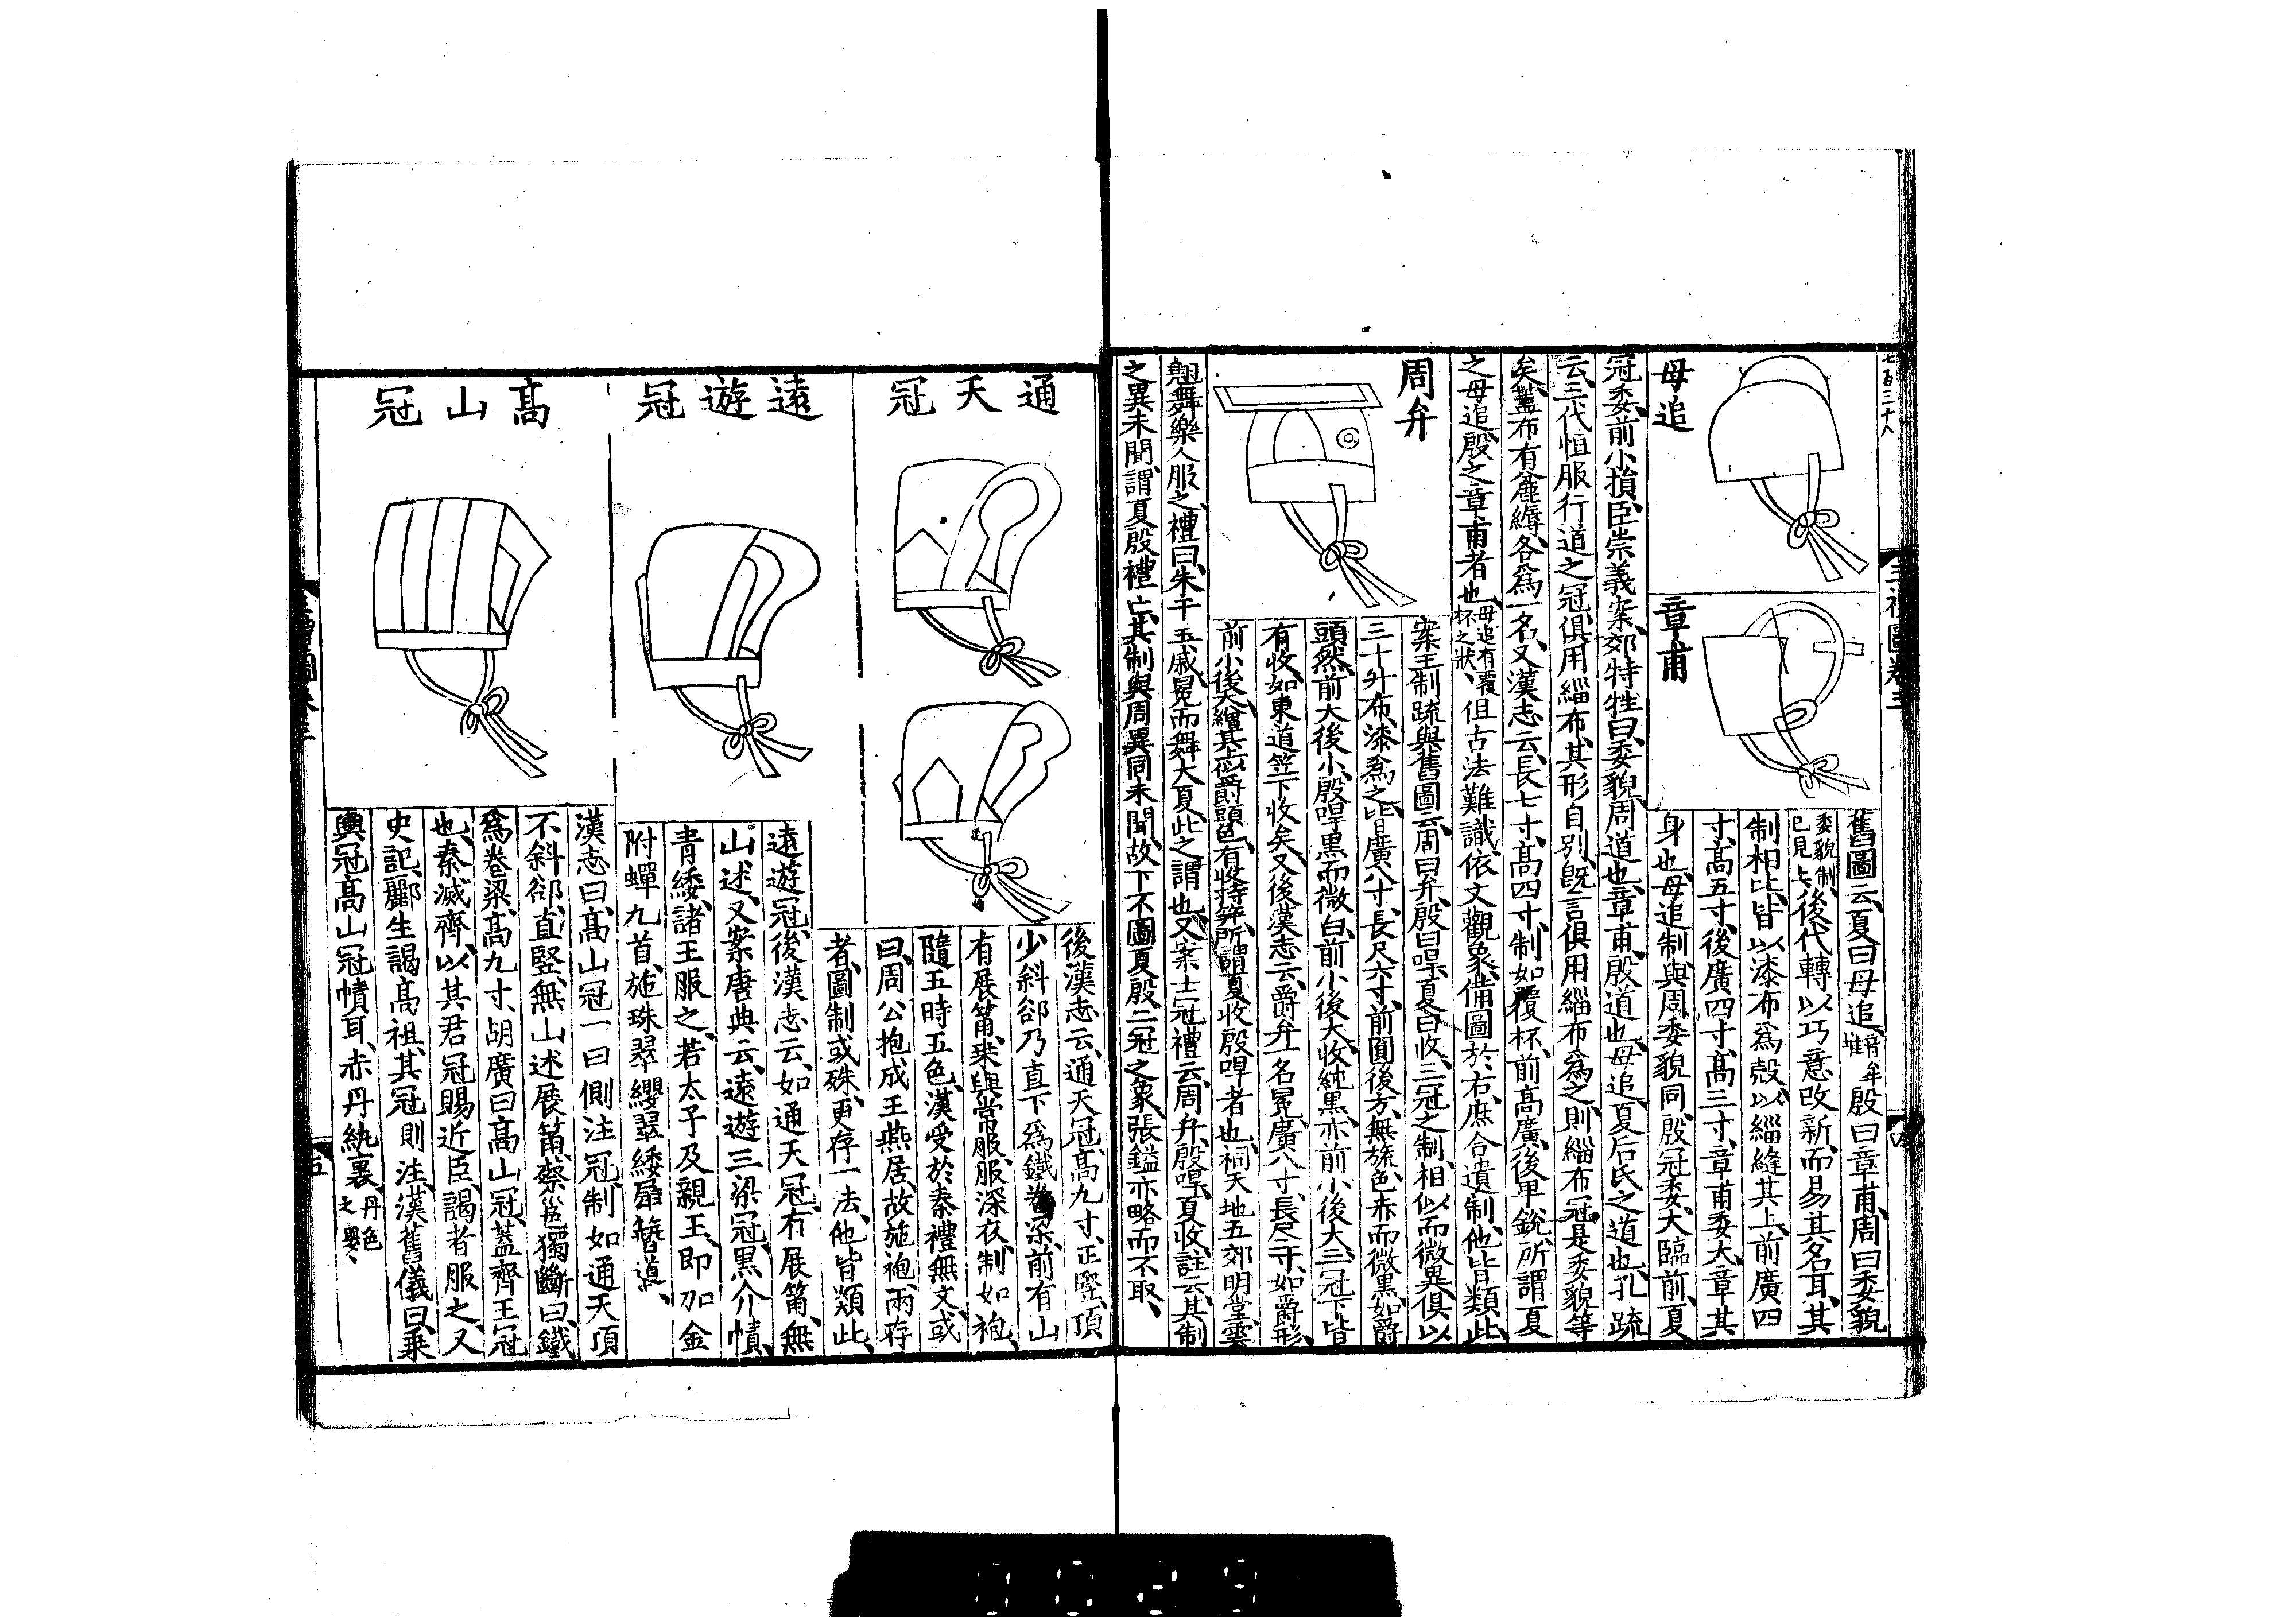 七百三十八
三禮圖卷三
四
母追
章甫
舊圖云、夏曰母追、音牟堆殷曰章甫、周曰委貌
委貌制已見上、後代轉以巧意改新、而易其名耳、其
制相比、皆以漆布爲殼、以緇縫其上、前廣四
寸、高五寸、後廣四寸、高三寸、章甫委大、章其
身也、母追制與周委貌同、殷冠委大臨前、夏
冠委前小損、臣崇義案、郊特牲曰、委貌、周道也、章甫、殷道也、母追、夏后氏之道也、孔疏
云、三代恒服行道之冠、俱用緇布、其形自別、旣言俱用緇布爲之、則緇布冠、是委貌等
矣、蓋布有麁縟、各爲一名、又漢志云、長七寸、高四寸、制如覆杯、前高廣、後卑銳、所謂夏
之母追、殷之章甫者也、母追有覆杯之狀、但古法難識、依文觀象、備圖於右、庶合遺制、他皆類此、
周弁
案王制疏與舊圖云、周曰弁、殷曰哻、夏曰收、三冠之制、相似而微異、俱以
三十升布、漆爲之、皆廣八寸、長尺六寸、前圓後方、無旒、色赤而微黑、如爵
頭然、前大後小、殷哻黑而微白、前小後大、收純黑、亦前小後大、三冠下皆
有收、如東道笠下收矣、又後漢志云、爵弁一名冕、廣八寸、長尺二寸、如爵形、
前小後大、繒其上似爵頭色、有收持笄、所謂夏收殷哻者也、祠天地五郊明堂、雲
翹舞樂人服之、禮曰、朱干玉戚、冕而舞大夏、此之謂也、又案士冠禮云、周弁、殷哻、夏收、註云、其制
之異未聞、謂夏殷禮亡、其制與周異同未聞、故下不圖夏殷二冠之象、張鎰亦略而不取、
通天冠
後漢志云、通天冠、高九寸、正竪、頂
少斜郤、乃直下爲鐵卷梁、前有山
有展筩、乗與常服、服深衣、制如袍、
隨五時五色、漢受於秦、禮無文、或
曰、周公抱成王燕居、故施袍、兩存
者、圖制或殊、更存一法、他皆類此、
遠遊冠
遠遊冠、後漢志云、如通天冠、有展筩、無
山述、又案唐典云、遠遊三梁冠、黑介幘、
青緌、諸王服之、若太子及親王、即加金
附蟬九首、施珠翠纓、翠緌、犀簪導、
高山冠
漢志曰、高山冠、一曰側注冠、制如通天、頂
不斜郤、直竪、無山述展筩、蔡邕獨斷曰、鐵
爲卷梁、高九寸、胡廣曰、高山冠、蓋齊王冠
也、秦滅齊、以其君冠賜近臣、謁者服之、又
史記、酈生謁高祖、其冠則注、漢舊儀曰、乗
輿冠高山冠、幘耳、赤丹紈裏、丹色之
五
0029